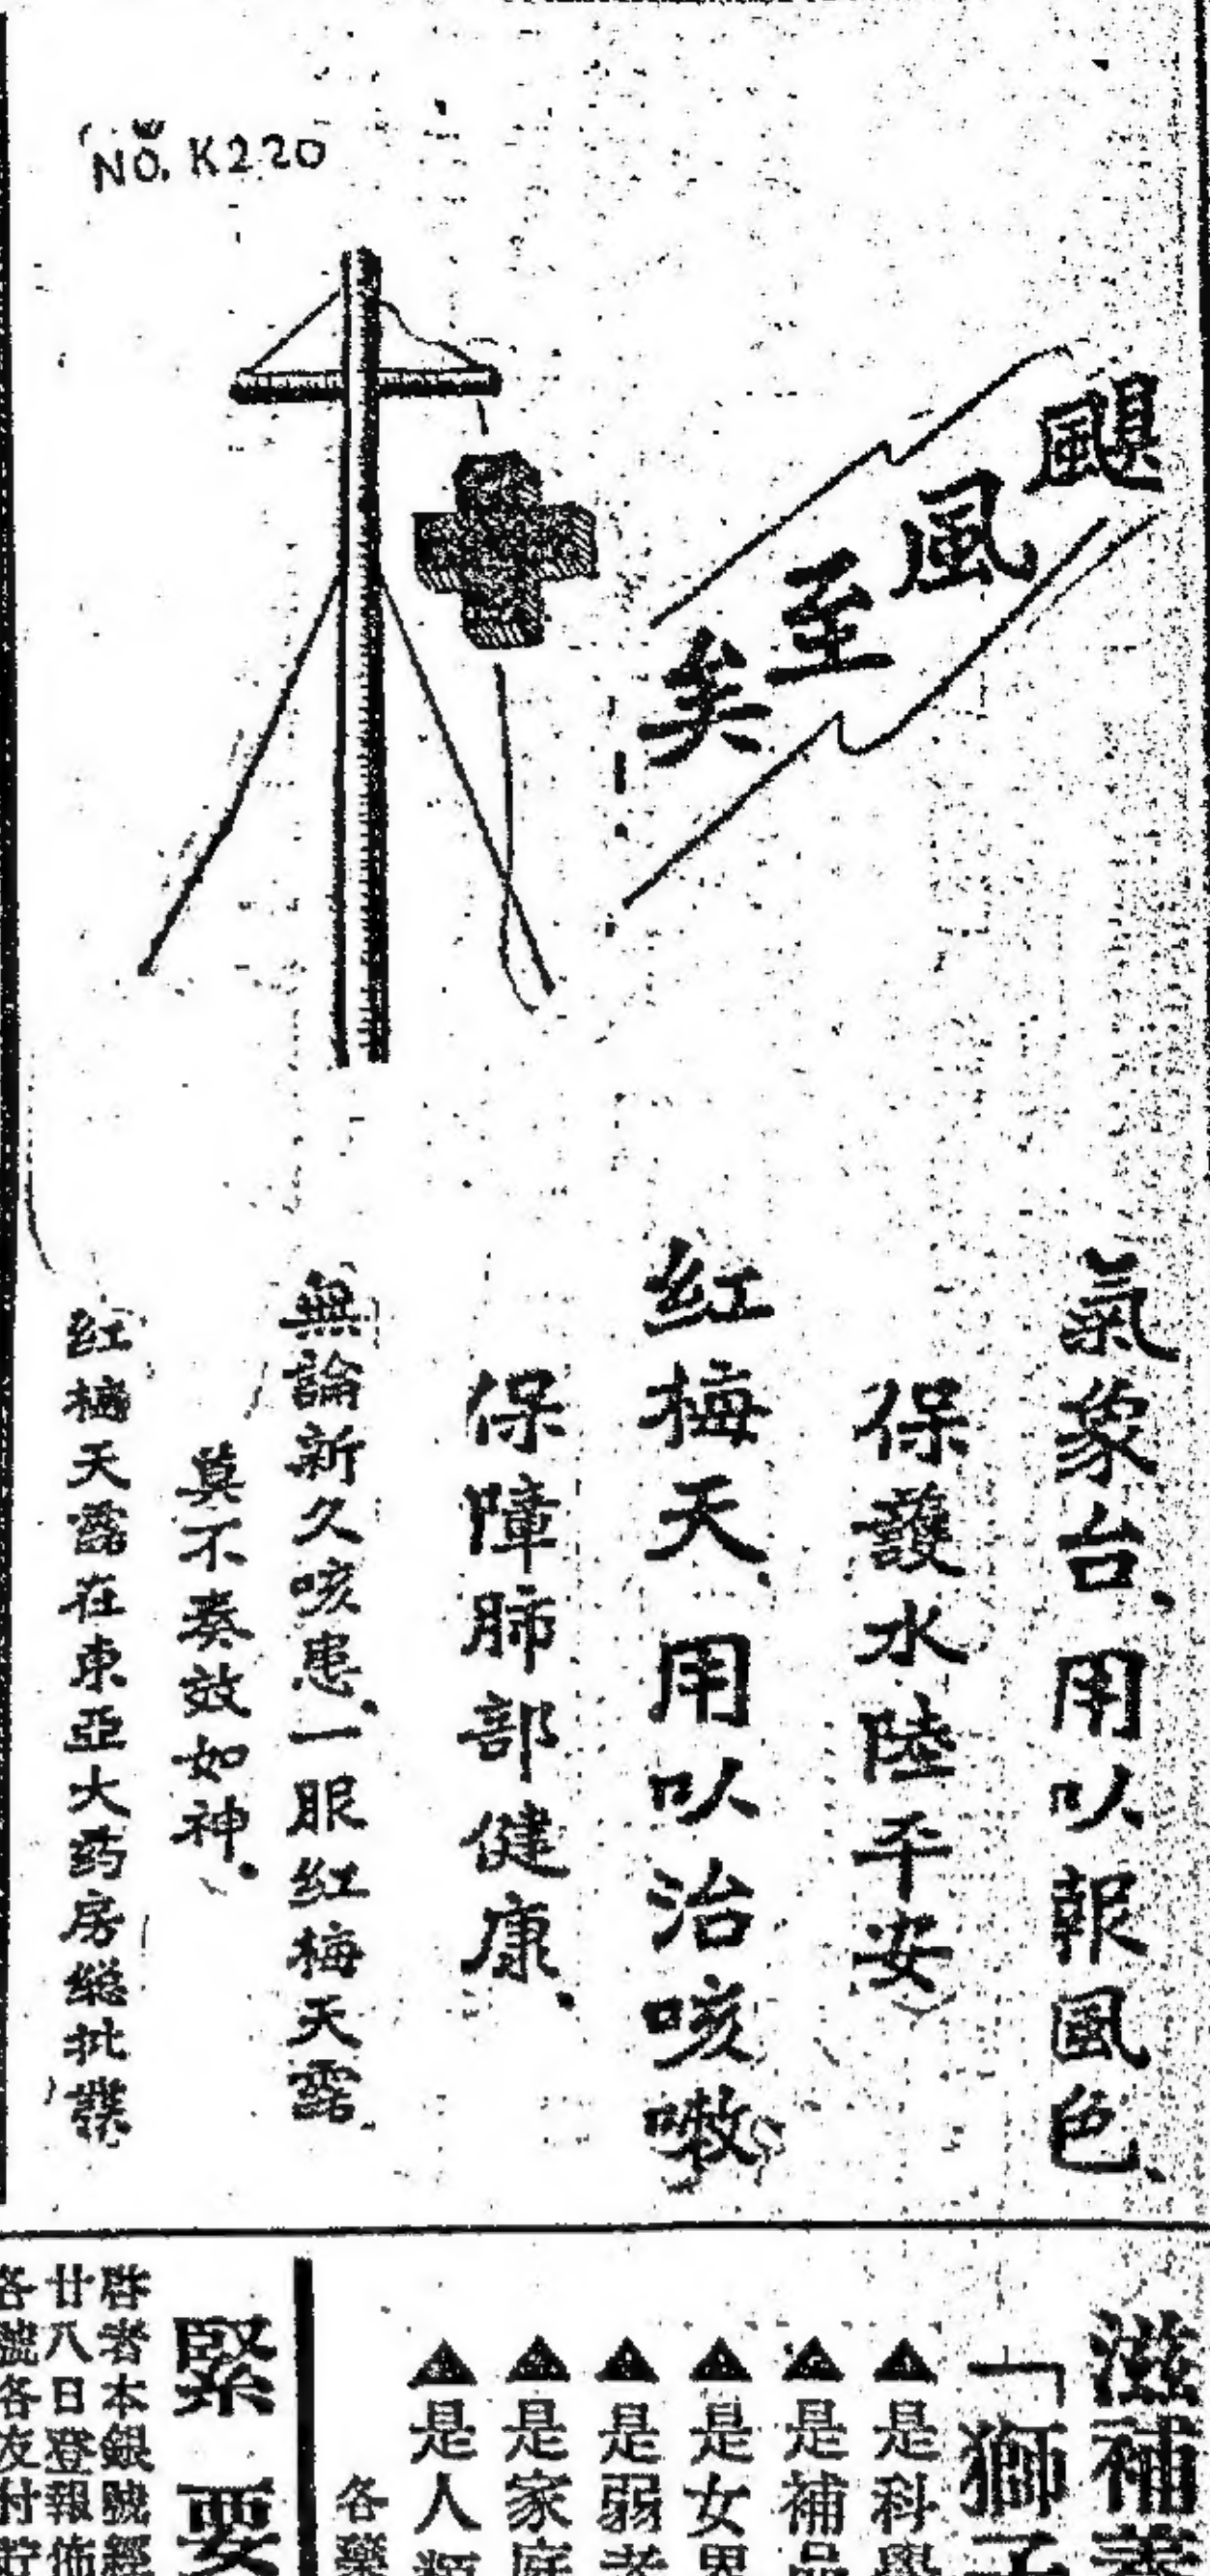 NO. K220
颶風至矣!
氣象台、用以報風色、
保護水陸平安
红梅天、用以治咳嗽
保障肺部健康、
無論新久咳患、一服红梅天露、
莫不奏效如神、
红梅天露在東亞大药房総批發
滋補
「獅子
▲是科學
▲是補品
▲是女界
▲是弱者
▲是家庭
▲是人類
各藥
緊要
啓者本銀號經
廿八日登報佈
各號各友付貯